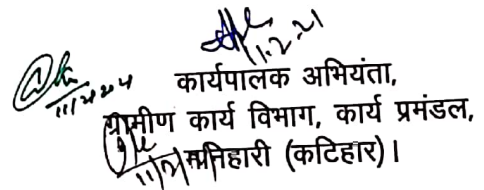 11.2.21
कार्यपालक अभियंता,
ग्रामीण कार्य विभाग, कार्य प्रमंडल,
मनिहारी (कटिहार)।